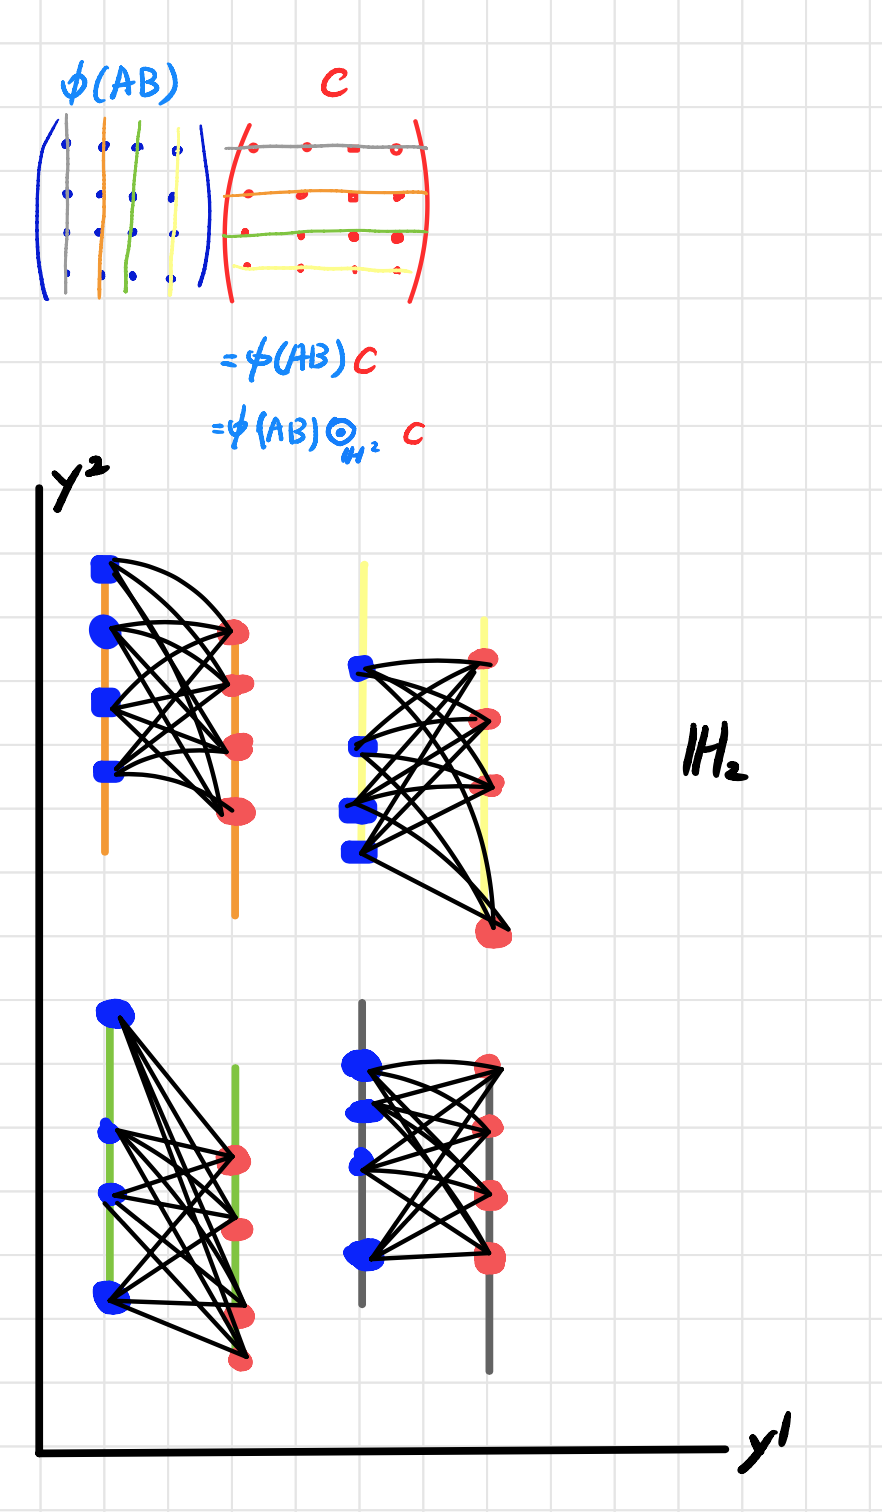 ϕ(AB) C
= ϕ(AB) C
= ϕ(AB) ⊙_ℍ² C
y²
ℍ₂
y¹